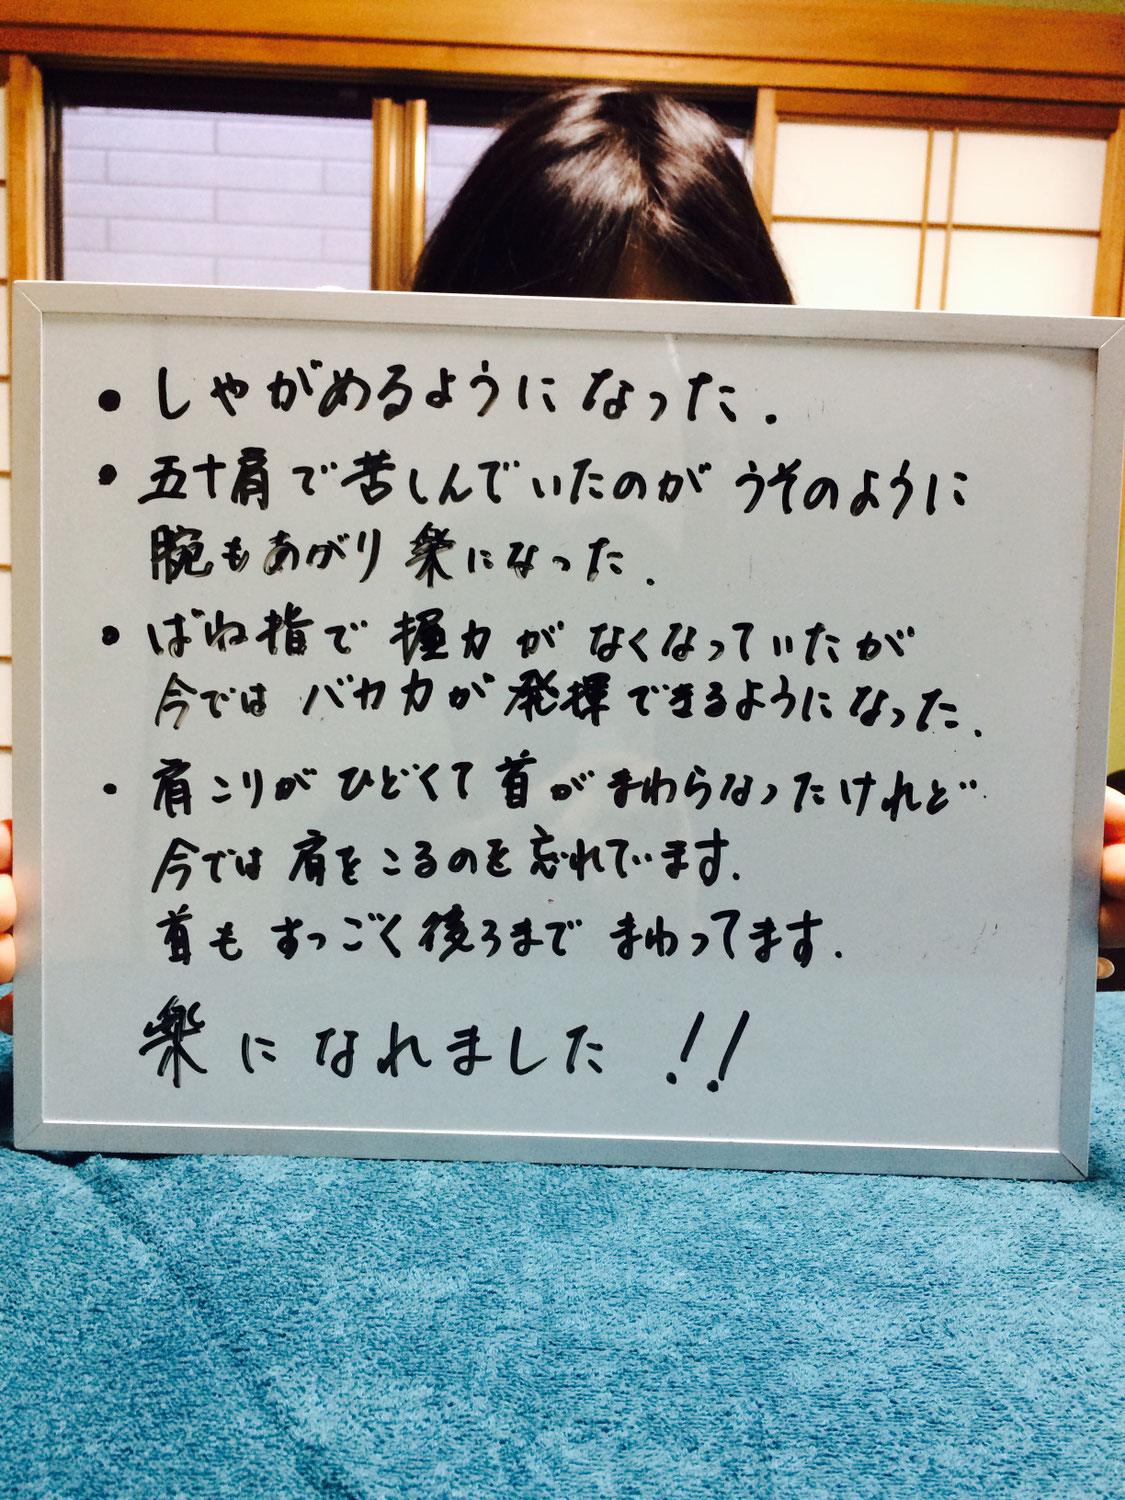 ・しゃがめるようになった.
・五十肩で苦しんでいたのが うそのように
腕もあがり 楽になった.
・ばね指で 握力が なくなっていたが
今では バカ力が 発揮できるようになった.
・肩こりが ひどくて 首が まわらなったけれど
今では 肩を こるのを 忘れています.
首も すっごく 後ろまで まわってます.
楽になれました!!